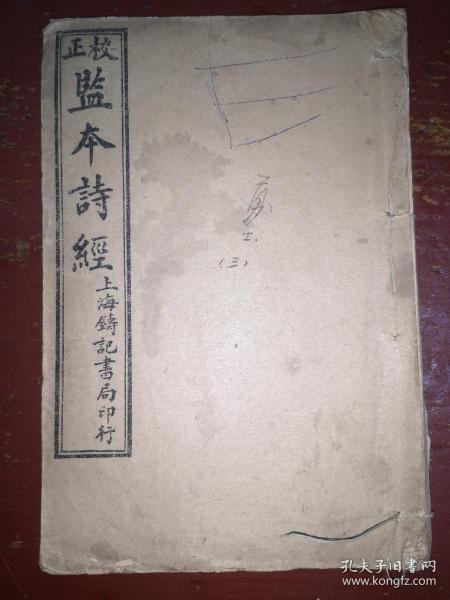 校正
監本詩經
上海鑄記書局印行
（三）
孔夫子旧书网
www.kongfz.com